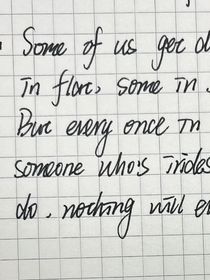 Some of us get d
in flat, some in
But every once in
someone who's irides
do, nothing will e